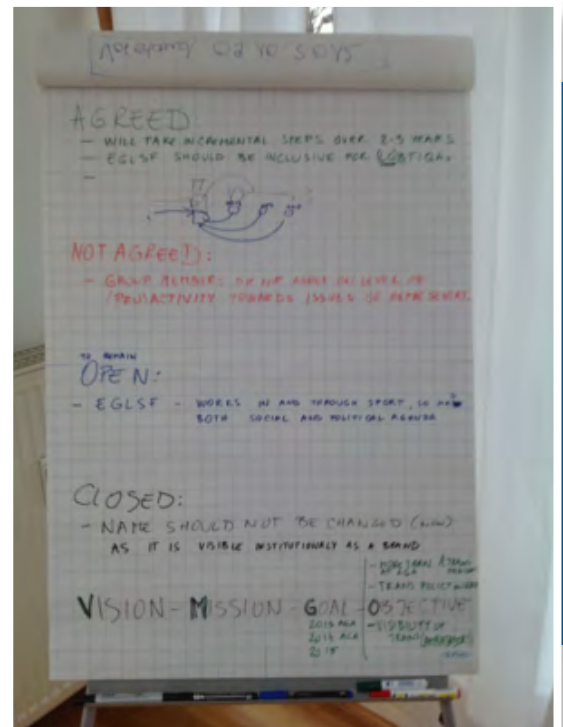 AGREED
- WILL TAKE INCREMENTAL STEPS OVER 2-5 YEARS
- EGLSF SHOULD BE INCLUSIVE FOR LGBTIQA+
-
NOT AGREED:
- GROUP MEMBERS DO NOT AGREE ON LEVEL OF
TOWARDS ISSUES OF
TO REMAIN
OPEN:
- EGLSF - WORKS IN AND THROUGH SPORT, SO
BOTH SOCIAL AND POLITICAL AGENDA
CLOSED:
- NAME SHOULD NOT BE CHANGED (NOW)
AS IT IS VISIBLE INSTITUTIONALY AS A BRAND
VISION - MISSION - GOAL - OBJECTIVE
2015 AGA
2016 AGA
- TRANS POLICY
- VISIBILITY OF
TRANS